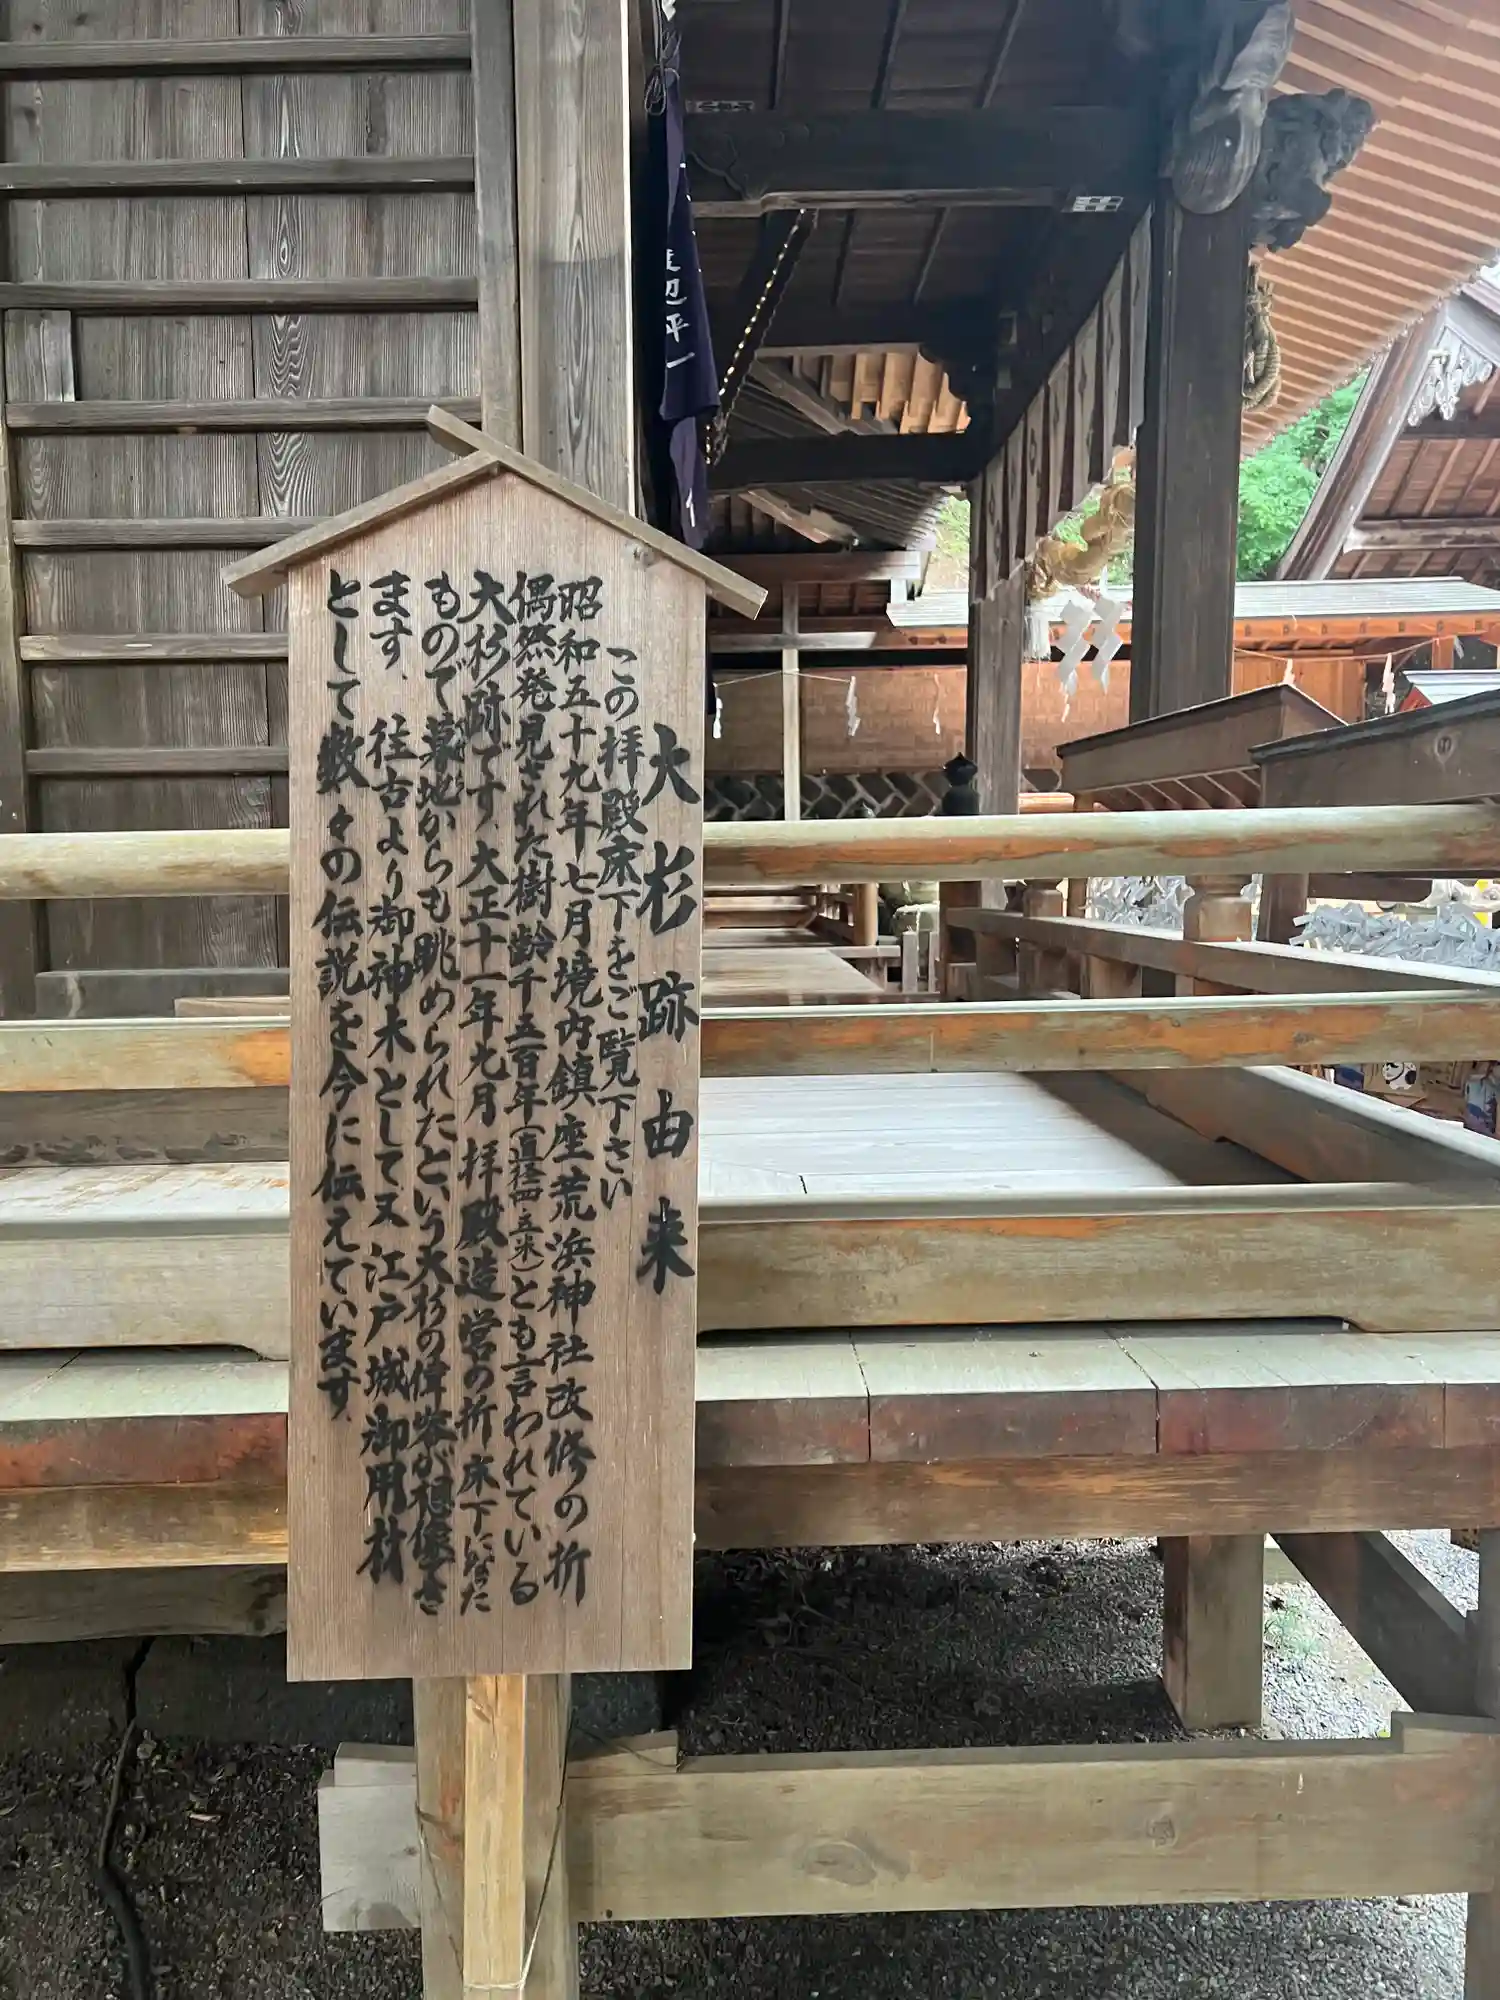 大杉跡由来
この拝殿床下をご覧下さい
昭和五十九年七月境内鎮座荒浜神社改修の折
偶然発見された樹齢千五百年(直径四.五米)とも言われている
大杉跡です、大正十一年九月拝殿造営の折床下になった
もので墓地からも眺められたという大杉の偉容が想像さ
ます、往古より御神木として又江戸城御用材
として数々の伝説を今に伝えています、
辺平一